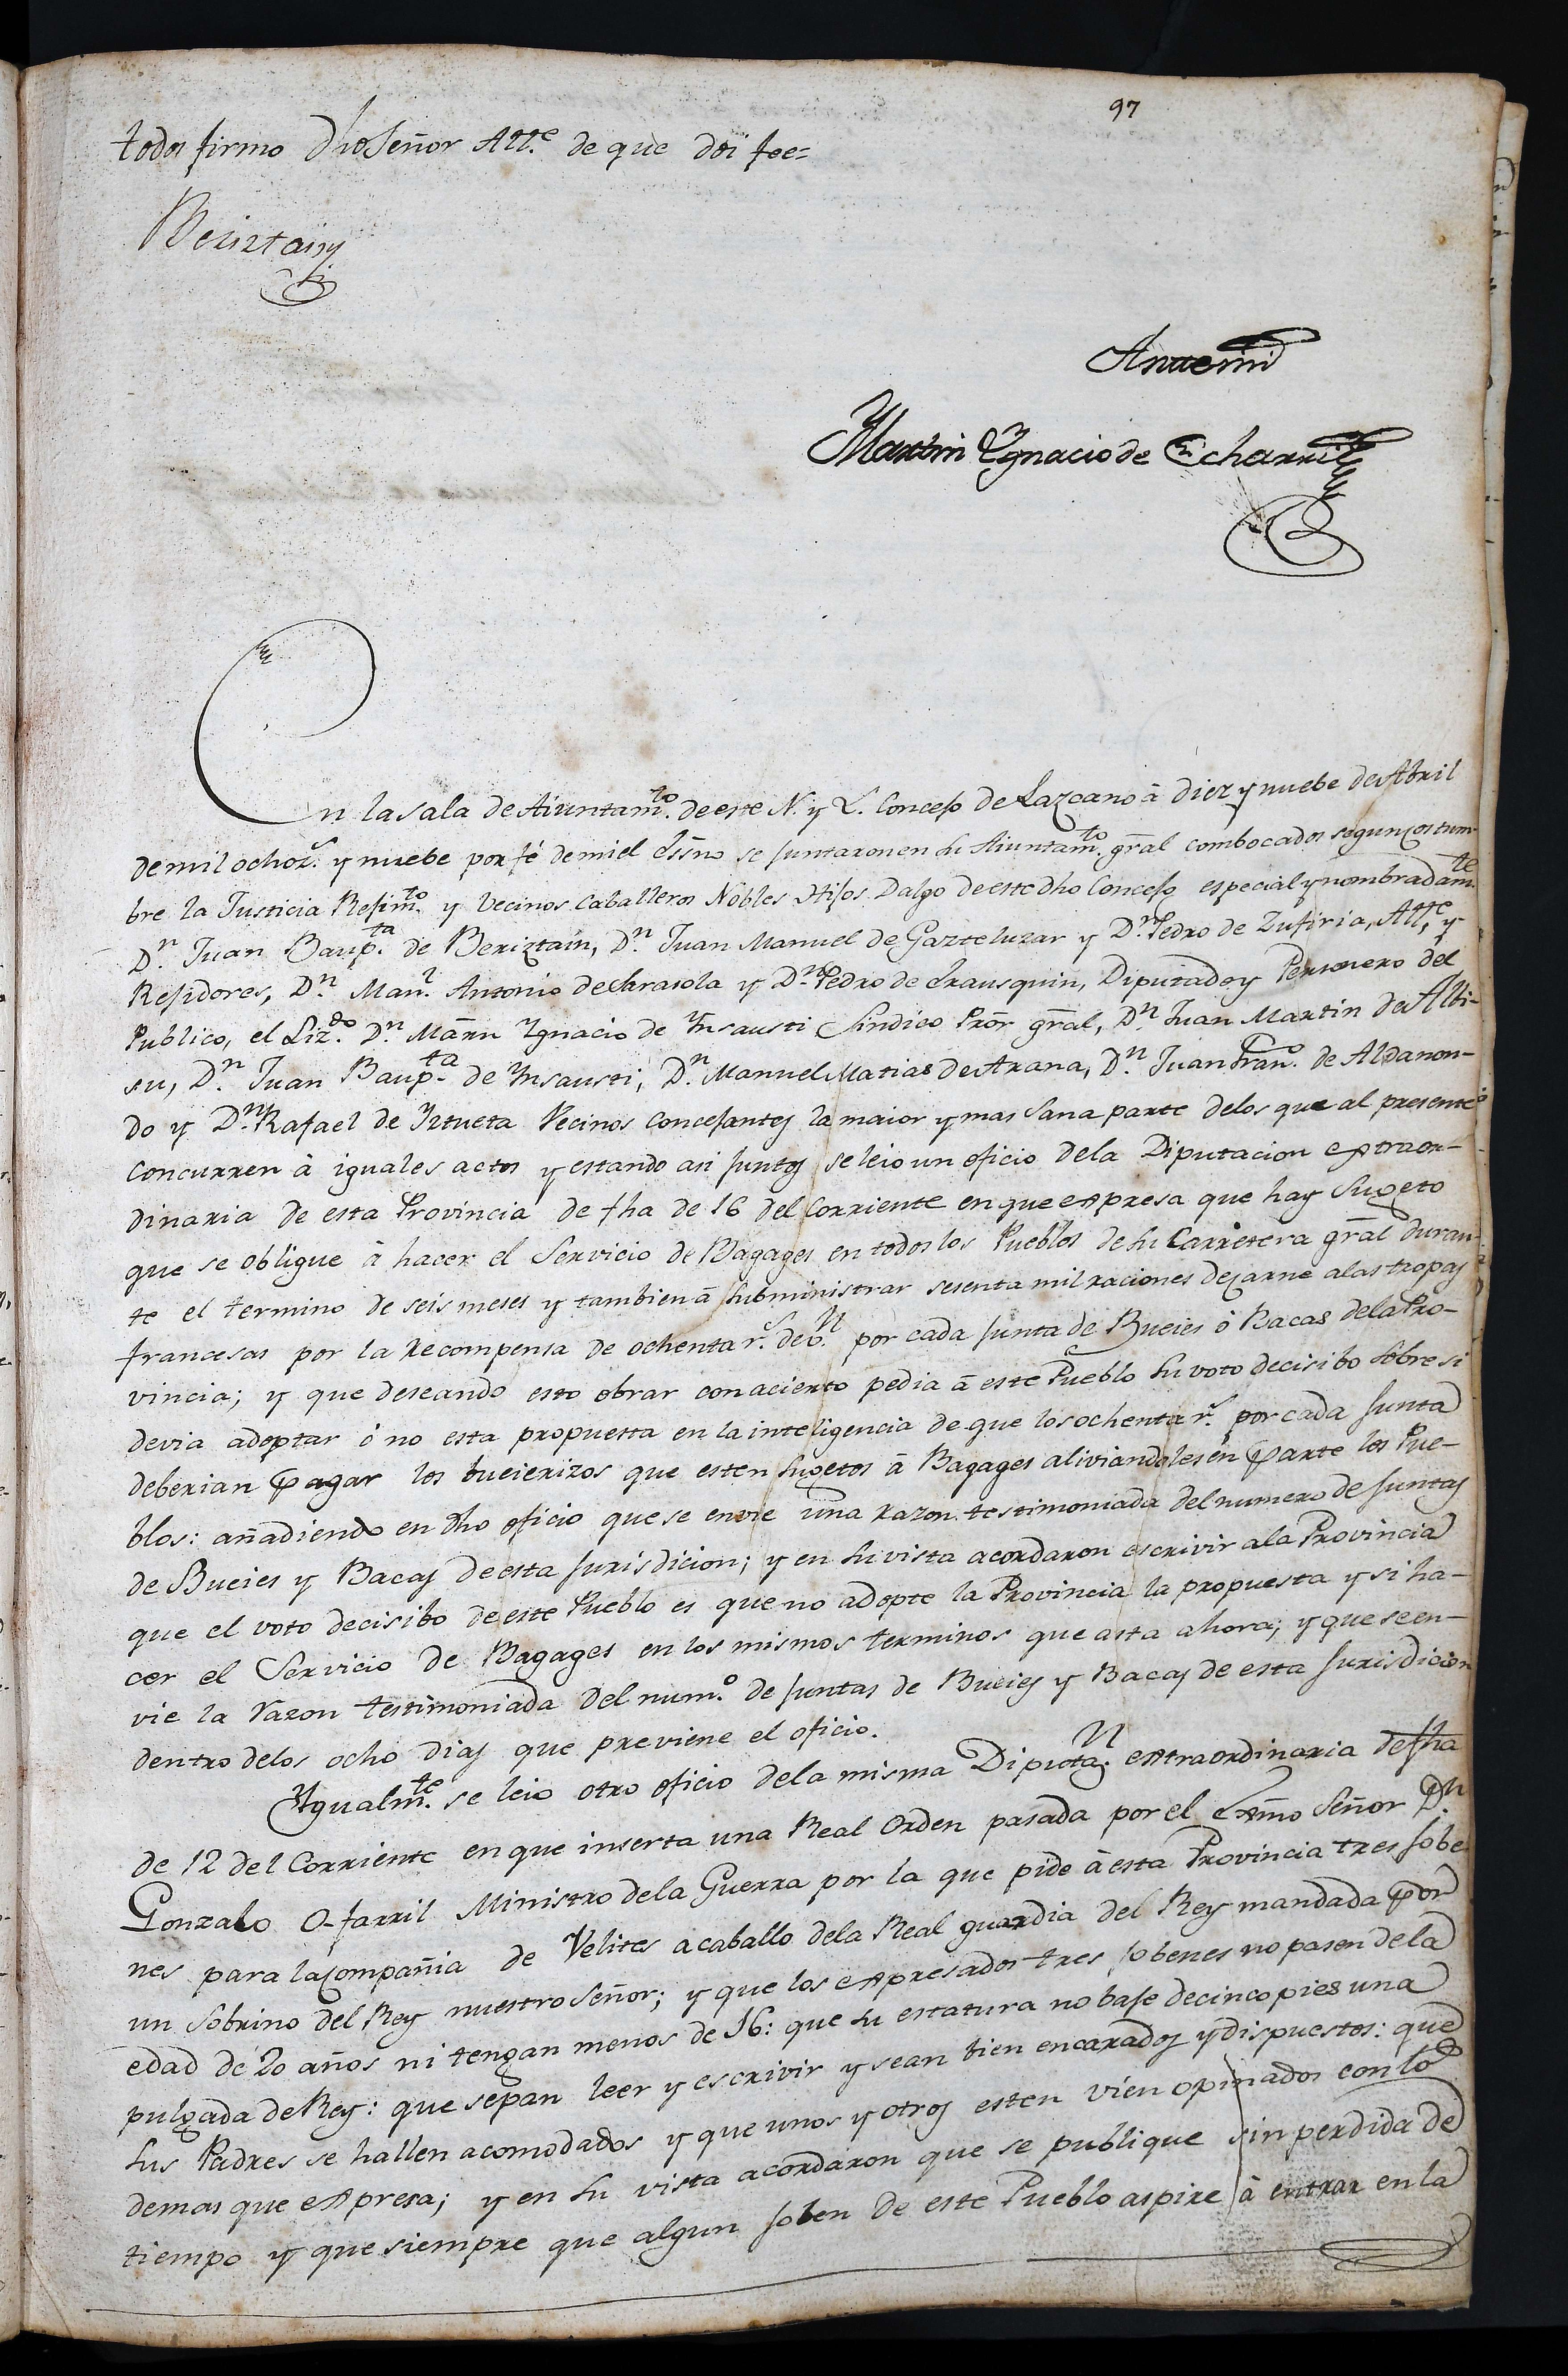 97
todos firmo dho Señor Alle. de que doi fee=
Beriztain
Antemi
Martin Ygnacio de Echarri
En la sala de Aiuntamto. de este N. y L. Concejo de Lazcano à diez y nuebe de Abril
de mil ochozs. y nuebe por fé de mi el Essno se juntaron en su Aiuntamto. gral combocados segun costum-
bre la Justicia Rejimto. y Vecinos Caballeros Nobles Hijos Dalgo de este dho Concejo especial y nombradamte.
Dn. Juan Baupta. de Beriztain, Dn. Juan Manuel de Gazteluzar y Dn. Pedro de Zufiria, Alle. y
Rejidores, Dn. Manl. Antonio de Urasola y Dn. Pedro de Yrausquin, Diputado y Personero del
Publico, el Lizdo. Dn. Marn Ygnacio de Ynsausti Sindico Pror gral, Dn. Juan Martin de Albi-
su, Dn. Juan Baupta. de Ynsausti, Dn. Manuel Matias de Arana, Dn. Juan Franco. de Aldanon-
do y Dn. Rafael de Yztueta Vecinos Concejantes la maior y mas sana parte de los que al presente
concurren à iguales actos y estando asi juntos se leio un oficio de la Diputacion extraor-
dinaria de esta Provincia de fha de 16 del Corriente en que expresa que hay Sugeto
que se obligue à hacer el Servicio de Bagages en todos los Pueblos de su Carretera gral duran-
te el termino de seis meses y tambien à subministrar sesenta mil raciones de carne a las tropas
francesas por la recompensa de ochenta rs. de vn. por cada junta de Bueies ó Bacas de la Pro-
vincia; y que deseando esto obrar con acierto pedia à este Pueblo su voto decisibo sobre si
devia adoptar ó no esta propuesta en la inteligencia de que los ochenta rs. por cada junta
deberian pagar los bueierizos que esten sugetos à Bagages aliviandoles en parte los Pue-
blos: añadiendo en dho oficio que se envie una razon testimoniada del numero de juntas
de Bueies y Bacas de esta jurisdicion; y en su vista acordaron escrivir a la Provincia
que el voto decisibo de este Pueblo es que no adopte la Provincia la propuesta y si ha-
cer el Servicio de Bagages en los mismos terminos que asta ahora; y que se en-
vie la razon testimoniada del numo. de juntas de Bueies y Bacas de esta jurisdicion
dentro de los ocho dias que previene el oficio.
Ygualmte. se leio otro oficio de la misma Diputan. extraordinaria de fha
de 12 del Corriente en que inserta una Real Orden pasada por el Exmo Señor Dn.
Gonzalo O-farril Ministro de la Guerra por la que pide à esta Provincia tres jobe-
nes para la compañia de Velites a caballo de la Real guardia del Rey mandada por
un Sobrino del Rey nuestro Señor; y que los expresados tres jobenes no pasen de la
edad de 20 años ni tengan menos de 16: que su estatura no baje de cinco pies una
pulgada de Rey: que sepan leer y escrivir y sean bien encarados y dispuestos: que
sus Padres se hallen acomodados y que unos y otros esten vien opinados con lo
demas que expresa; y en su vista acordaron que se publique sin perdida de
tiempo y que siempre que algun joben de este Pueblo aspire à entrar en la